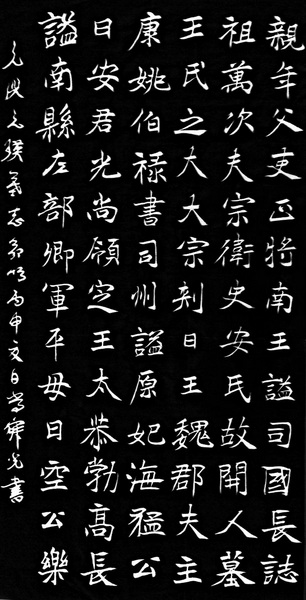 親年父吏正將南王謚司國長誌
祖萬次夫宗衛史安民故開人墓
王氏之大大宗刺日王魏郡夫主
康姚伯祿書司州謚原妃海猛公
日安君光尚領定王太恭勃高長
謚南縣左部卿軍平毋日空公樂
元元志丙申文日光書